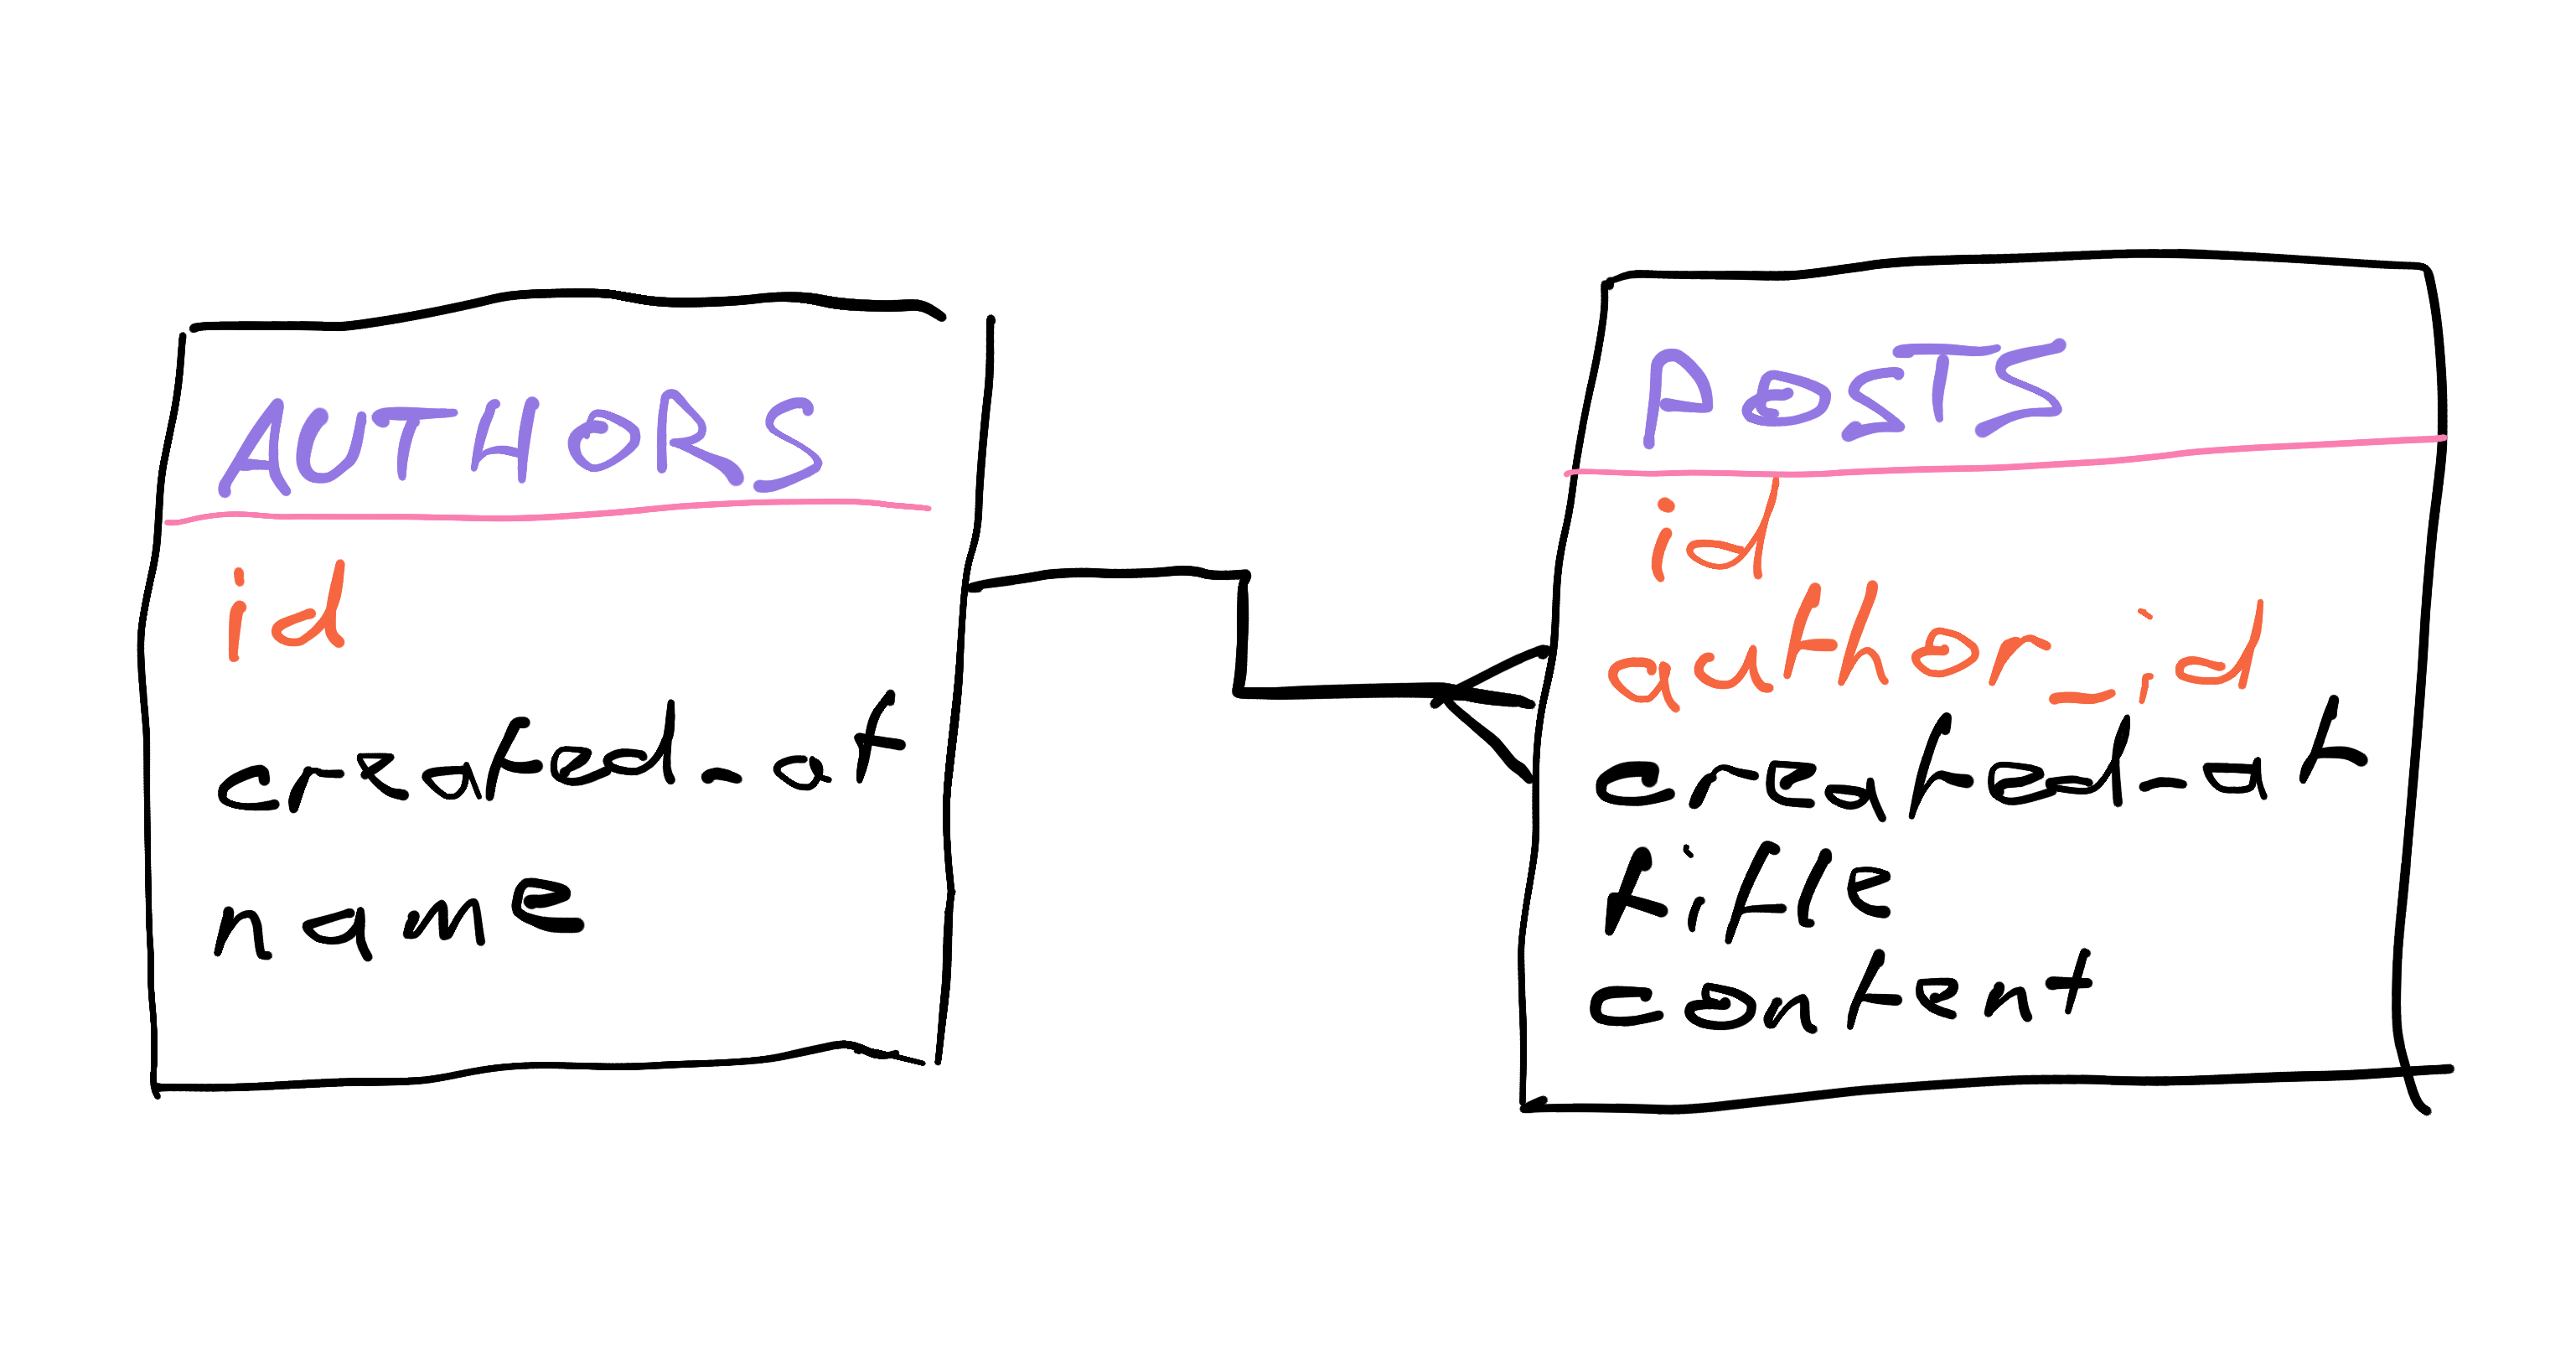 AUTHORS
id
created_at
name
POSTS
id
author_id
created_at
title
content